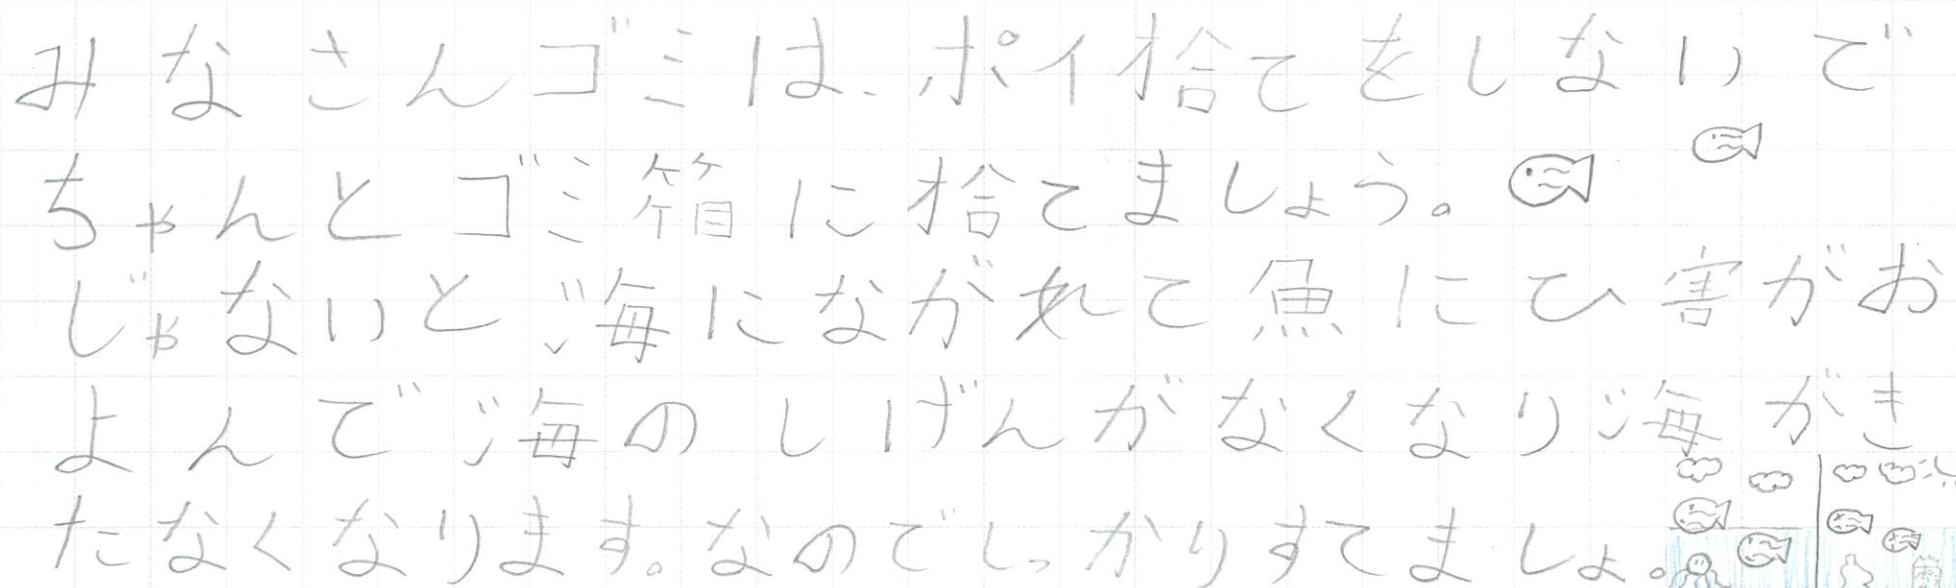 みなさんゴミは、ポイ捨てをしないで
ちゃんとゴミ箱に捨てましょう。
じゃないと海にながれて魚にひ害がお
よんで海のしげんがなくなり海がき
たなくなります。なのでしっかりすてましょ。